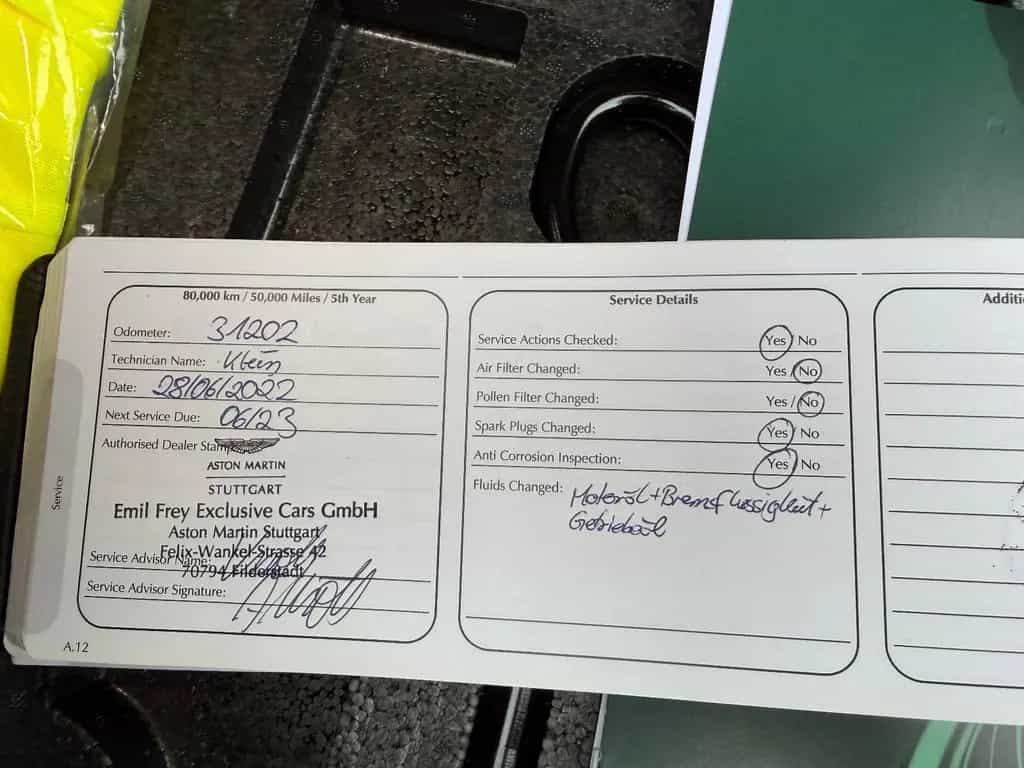 80,000 km / 50,000 Miles / 5th Year
Odometer: 31202
Technician Name: Klein
Date: 28/06/2022
Next Service Due: 06/23
Authorised Dealer Stamp
ASTON MARTIN
STUTTGART
Emil Frey Exclusive Cars GmbH
Aston Martin Stuttgart
Felix-Wankel-Strasse 42
Service Advisor Name:
70794 Filderstadt
Service Advisor Signature:
Service
A.12
Service Details
Service Actions Checked: Yes / No
Air Filter Changed: Yes / No
Pollen Filter Changed: Yes / No
Spark Plugs Changed: Yes / No
Anti Corrosion Inspection: Yes / No
Fluids Changed: Motoröl + Bremsflüssigkeit +
Getriebeöl
Additi